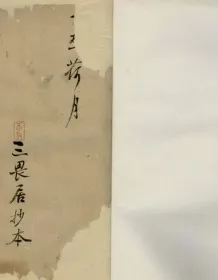 三荷月
三畏居抄本